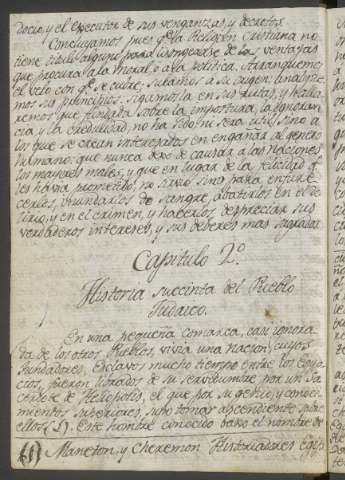 docio, y el executor de sus venganzas, y decretos.
Concluyamos pues qe. la Religion Cristiana no
tiene titulo alguno para lisongearse de las ventajas
que procura a la moral o a la politica. Arranquemos
el velo con qe. se cubre, subamos a su origen, analize
mos sus principios, sigamosla en sus rutas, y halla
remos que fundada sobre la impostura, la ignoran
cia y la credulidad, no ha sido, ni sera util sino a
los que se crean interesados en engañar al genero
humano: que nunca dexo de causar a las naciones
los mayores males, y que en lugar de la felicidad q
les havia prometido, no sirvio sino para enfure
cerlas, inundarlas de sangre, abatirlas en el de
lirio, y en el crimen, y hacerlas despreciar sus
verdaderos intereses, y sus deberes mas sagrados.
Capitulo 2º.
Historia succinta del Pueblo
Judaico.
En una pequeña comarca, casi ignora
da de los otros Pueblos, vivia una Nacion, cuyos
fundadores, Esclavos mucho tiempo entre los Egip
cios, fueron librados de su servidumbre por un Sa
cerdote de Heliopolis, el que por su genio, y conoci
mientos superiores, supo tomar ascendiente sobre
ellos (1). Este hombre conocido baxo el nombre de
(1) Maneton, y Cheremon Historiadores Egip